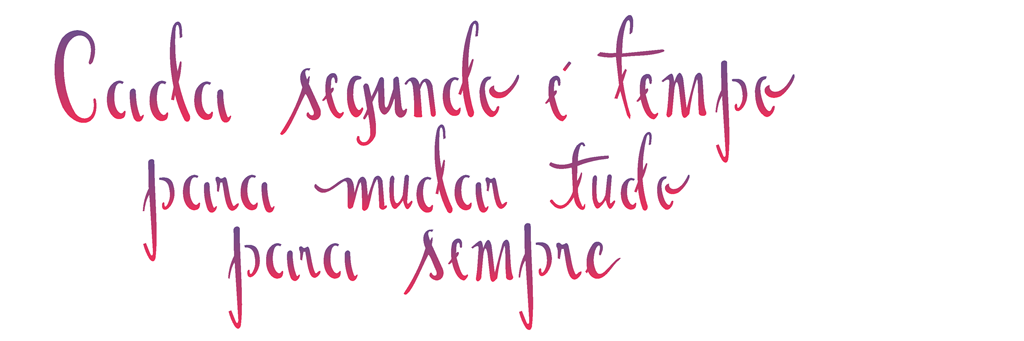 Cada segundo é tempo
para mudar tudo
para sempre